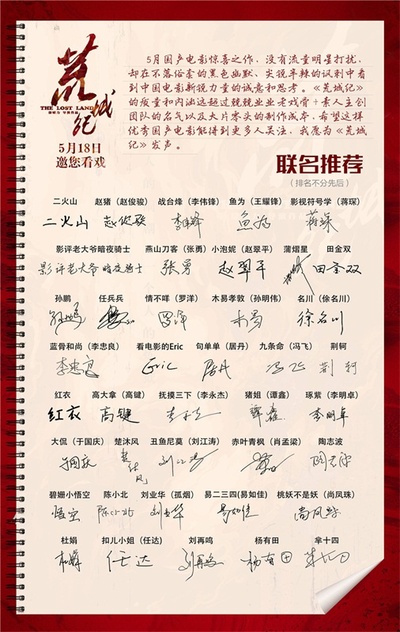 荒城纪
THE LOST LAND
5月18日
邀您看戏
5月国产电影惊喜之作，没有流量明星打扰，
却在不落俗套的黑色幽默、尖锐辛辣的讽刺中看
到中国电影新锐力量的诚意和思考。《荒城纪》
的质量和内涵远超过兢兢业业老戏骨+素人主创
团队的名气以及大片零头的制作成本，希望这样
优秀国产电影能得到更多人关注，我愿为《荒城
纪》发声。
联名推荐
（排名不分先后）
二火山 赵猪（赵俊骏） 战台烽（李伟锋） 鱼为（王耀锋） 影视符号学（蒋琛）
二火山
影评老大爷暗夜骑士 燕山刀客（张勇） 小泡妮（赵翠平） 蒲熠星 田金双
影评老大爷暗夜骑士 张勇 赵翠平 田金双
孙鹏 任兵兵 情不咩（罗洋） 木易孝敦（孙明伟） 名川（徐名川）
罗洋 木易 徐名川
蓝骨和尚（李忠良） 看电影的Eric 句单单（居丹） 九条命（冯飞） 荆轲
李忠良 Eric 居丹 冯飞 荆轲
红衣 高大拿（高键） 抚摸三下（李永杰） 猪姐（谭鑫） 琢紫（李明卓）
红衣 高键
大侃（于国庆） 楚沐风 丑鱼尼莫（刘江涛） 赤叶青枫（肖孟梁） 陶志波
于国庆 楚沐风 刘江涛
碧姗小悟空 陈小北 刘业华（孤烟） 易二三四(易如佳) 桃妖不是妖（尚凤珠）
悟空 陈小北 刘业华 易如佳
杜娟 扣儿小姐（任达） 刘再鸣 杨有田 牟十四
杜娟 任达 刘再鸣 杨有田